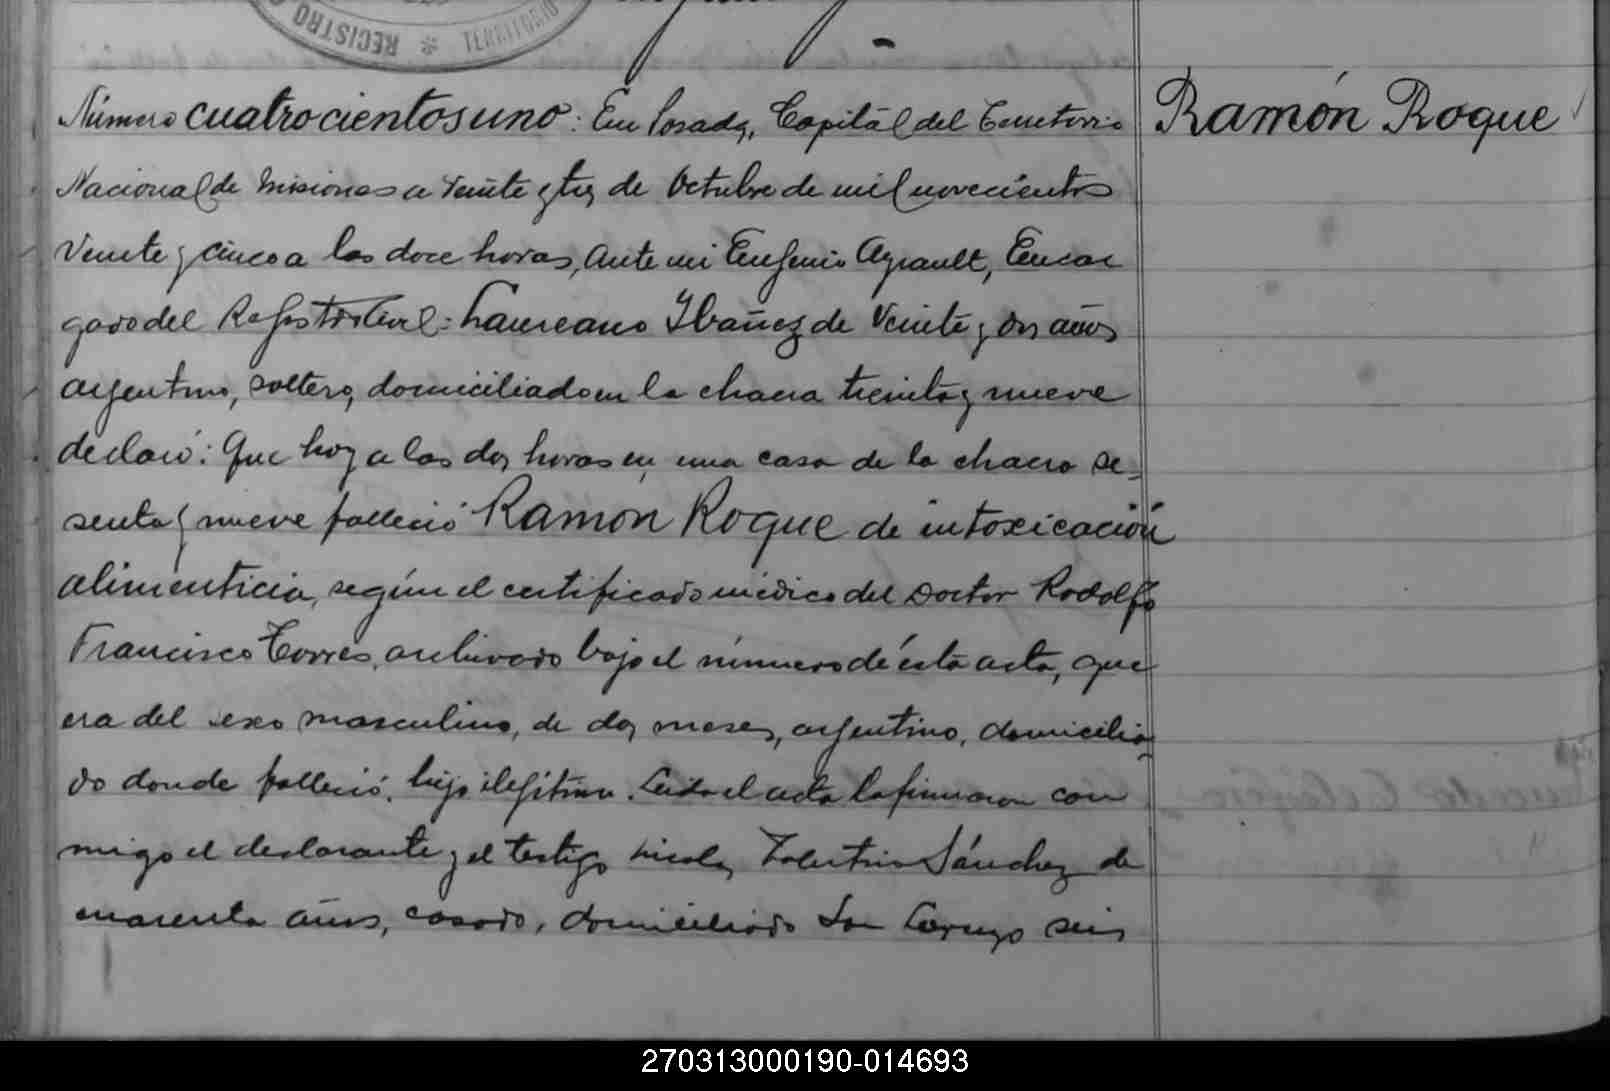 REGISTRO * TERRITORIO
Número cuatrocientos uno: En Posadas, Capital del Territorio
Ramón Roque
Nacional de Misiones a veinte y tres de Octubre de mil novecientos
veinte y cinco a las doce horas, ante mi Eugenio Ayrault, Encar
gado del Registro Civil: Laureano Ibañez de veinte y dos años
argentino, soltero, domiciliado en la chacra treinta y nueve
declaró: Que hoy a las dos horas en una casa de la chacra se-
senta y nueve falleció Ramón Roque de intoxicación
alimenticia, según el certificado médico del Doctor Rodolfo
Francisco Torres, archivado bajo el número de ésta acta, que
era del sexo masculino, de dos meses, argentino, domicilia
do donde falleció, hijo ilegítimo. Leida el acta la firmaron con
migo el declarante y el testigo Nicolas Tolentino Sánchez de
cuarenta años, casado, domiciliado San Lorenzo seis
270313000190-014693